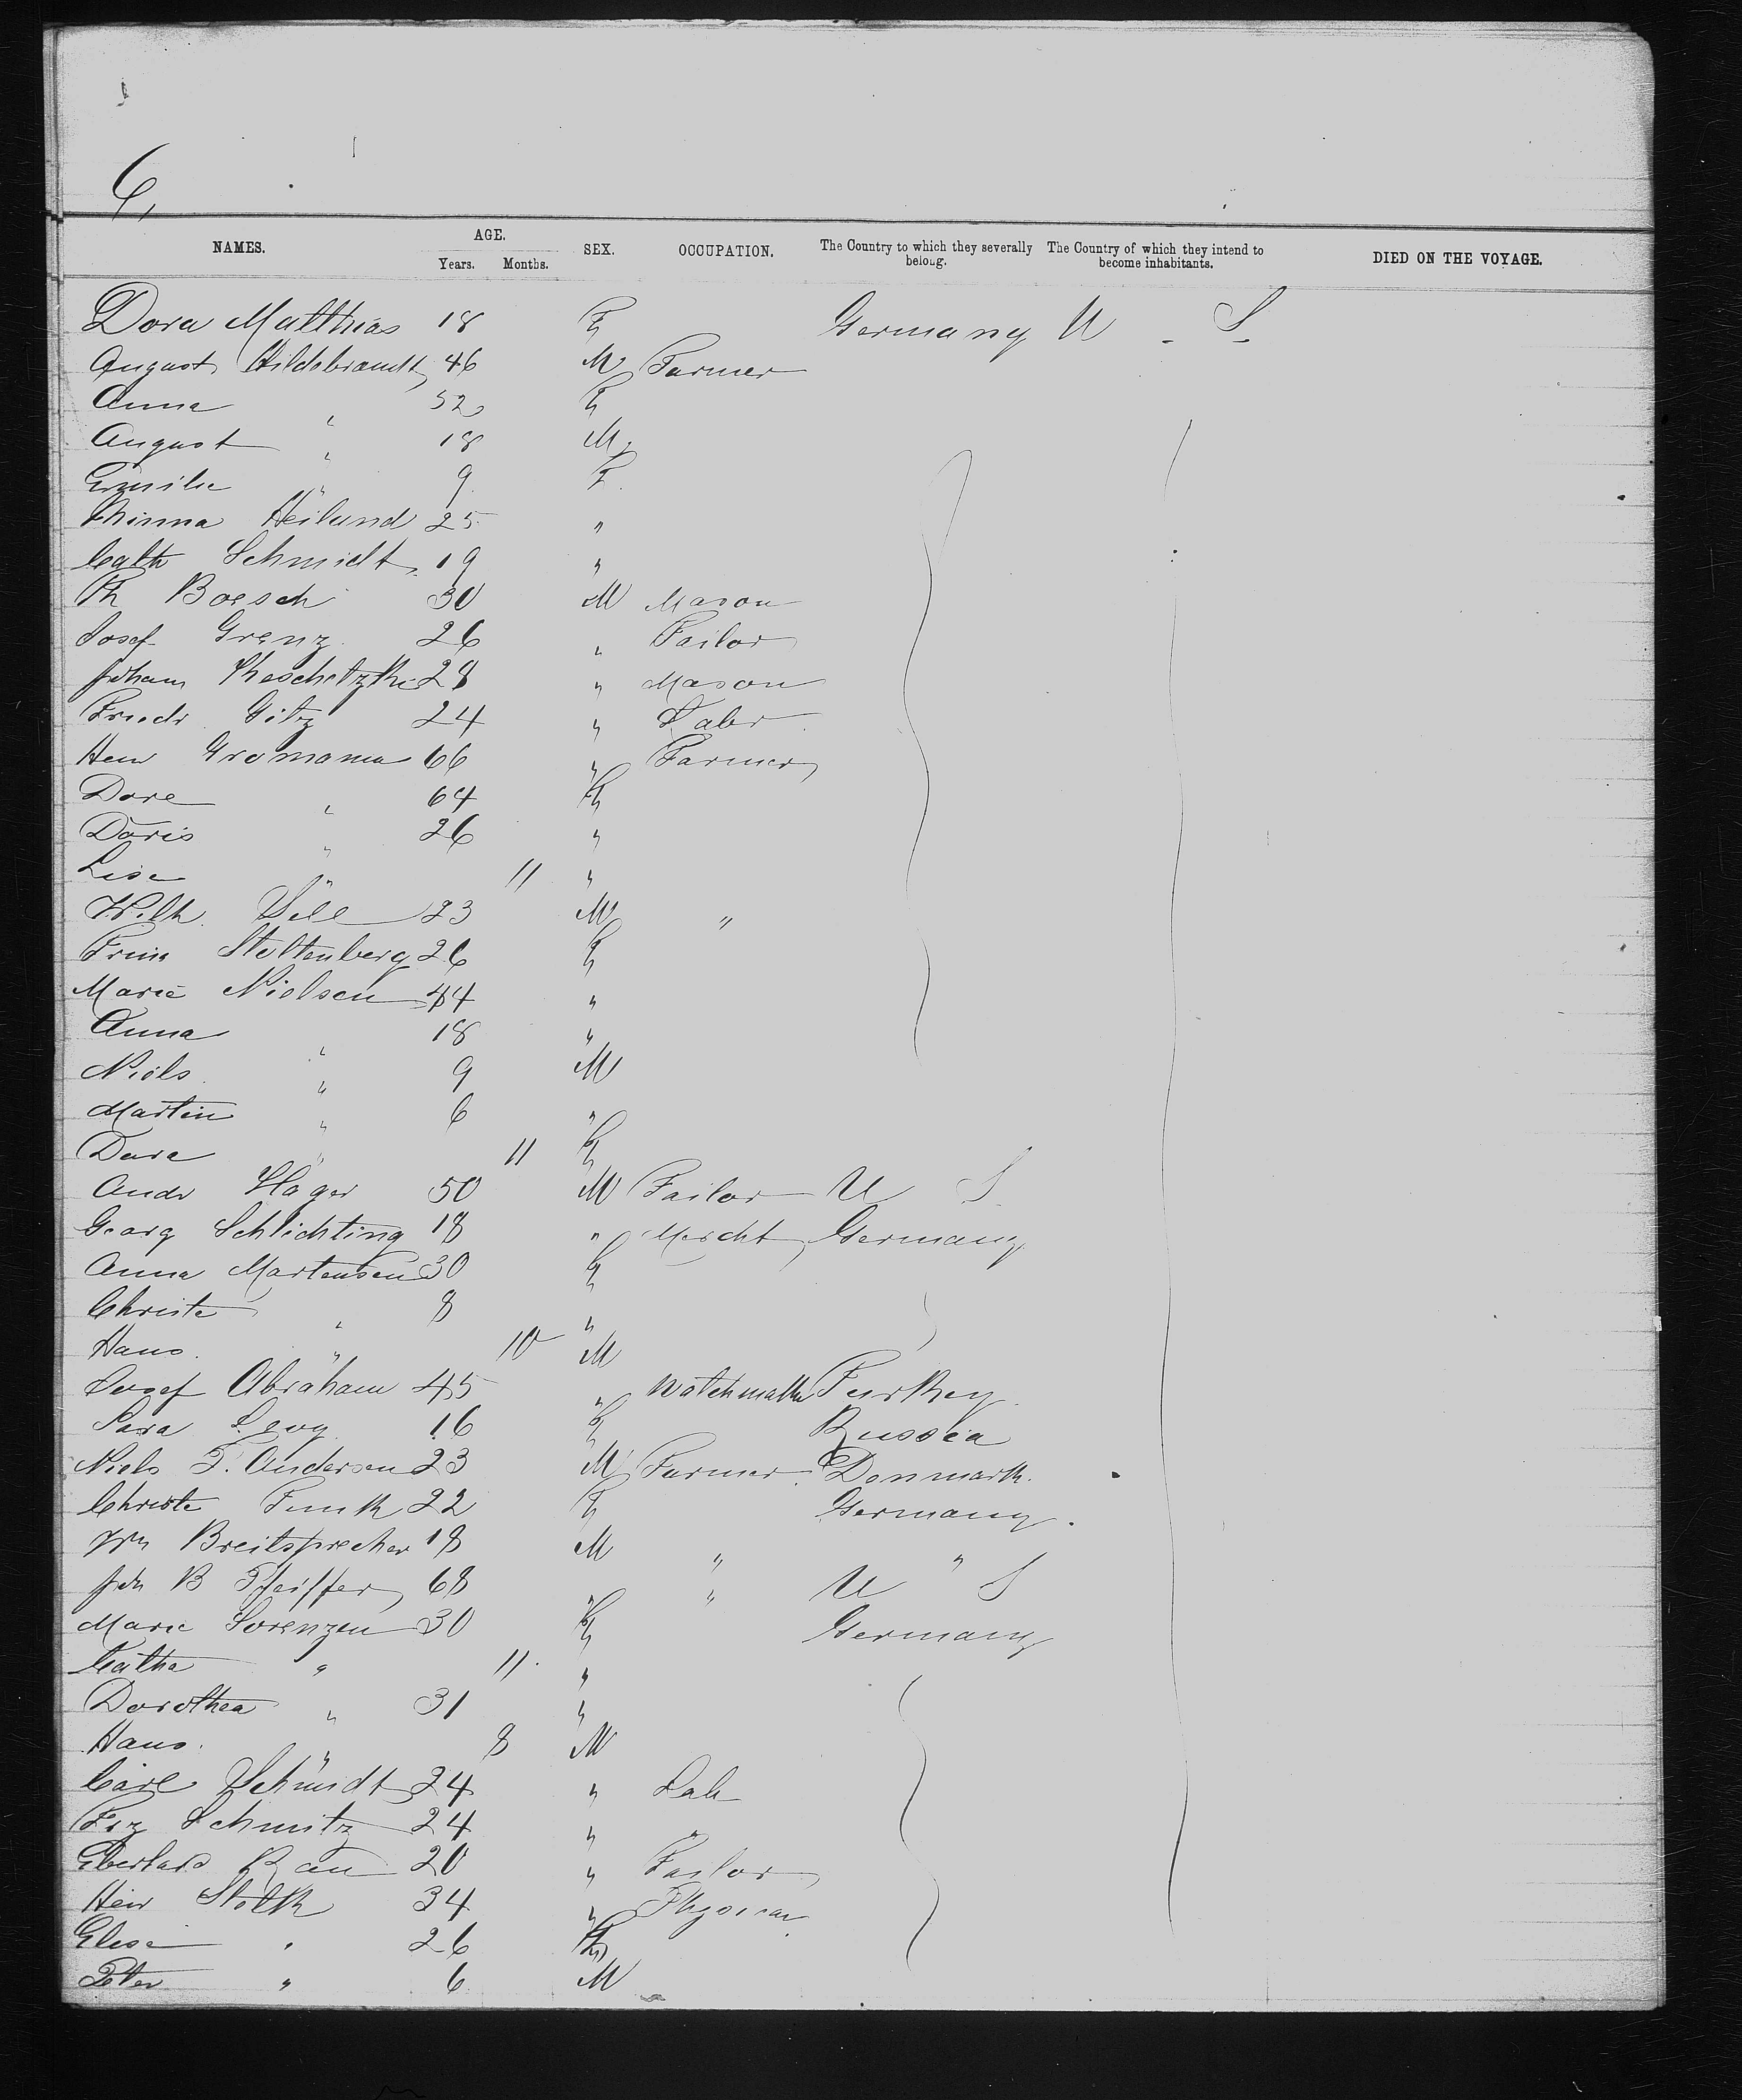 6,
NAMES. AGE. Years. Months. SEX. OCCUPATION. The Country to which they severally belong. The Country of which they intend to become inhabitants. DIED ON THE VOYAGE.
Dora Matthias 18 F Germany U - S -
August Hildebrandt 46 M Farmer
Anna " 52 F
August " 18 M
Emilie " 9 F
Minna Heiland 25 "
Cath Schmidt 19 "
Th Boesch 30 M Mason
Josef Grenz 26 " Tailor
Johann 28 " Mason
Friedr Götz 24 " Labr
Heinr Gromann 66 " Farmer
Dore " 64 F
Doris " 26 "
Lise " 11 "
Wilh. Sell 23 M "
Trina Stoltenberg 26 F
Marie Nielsen 44 "
Anna " 18 "
Niels " 9 M
Martin " 6 "
Dora " 11 F
Andr Hager 50 M Tailor U S
Georg Schlichting 18 " Mercht Germany
Anna Martensen 30 F
Christe " 8 "
Hans " 10 M
Josef Abraham 45 " Watchmaker Turkey
Sara Levy 16 F Russia
Niels T. Andersen 23 M Farmer Denmark.
Christe Funk 22 F Germany.
Wm Breitsprecher 18 M " "
Joh B Pfeiffer 68 " " U S
Marie Lorenzen 30 F Germany
Catha " 11. "
Dorothea " 31 "
Hans. " 8 M
Carl Schmidt 24 " Lab
Frz Schmitz 24 " "
Eberhard Rau 20 " Tailor
Heinr Stolk 34 " Physican
Elise " 26 F
Peter " 6 M